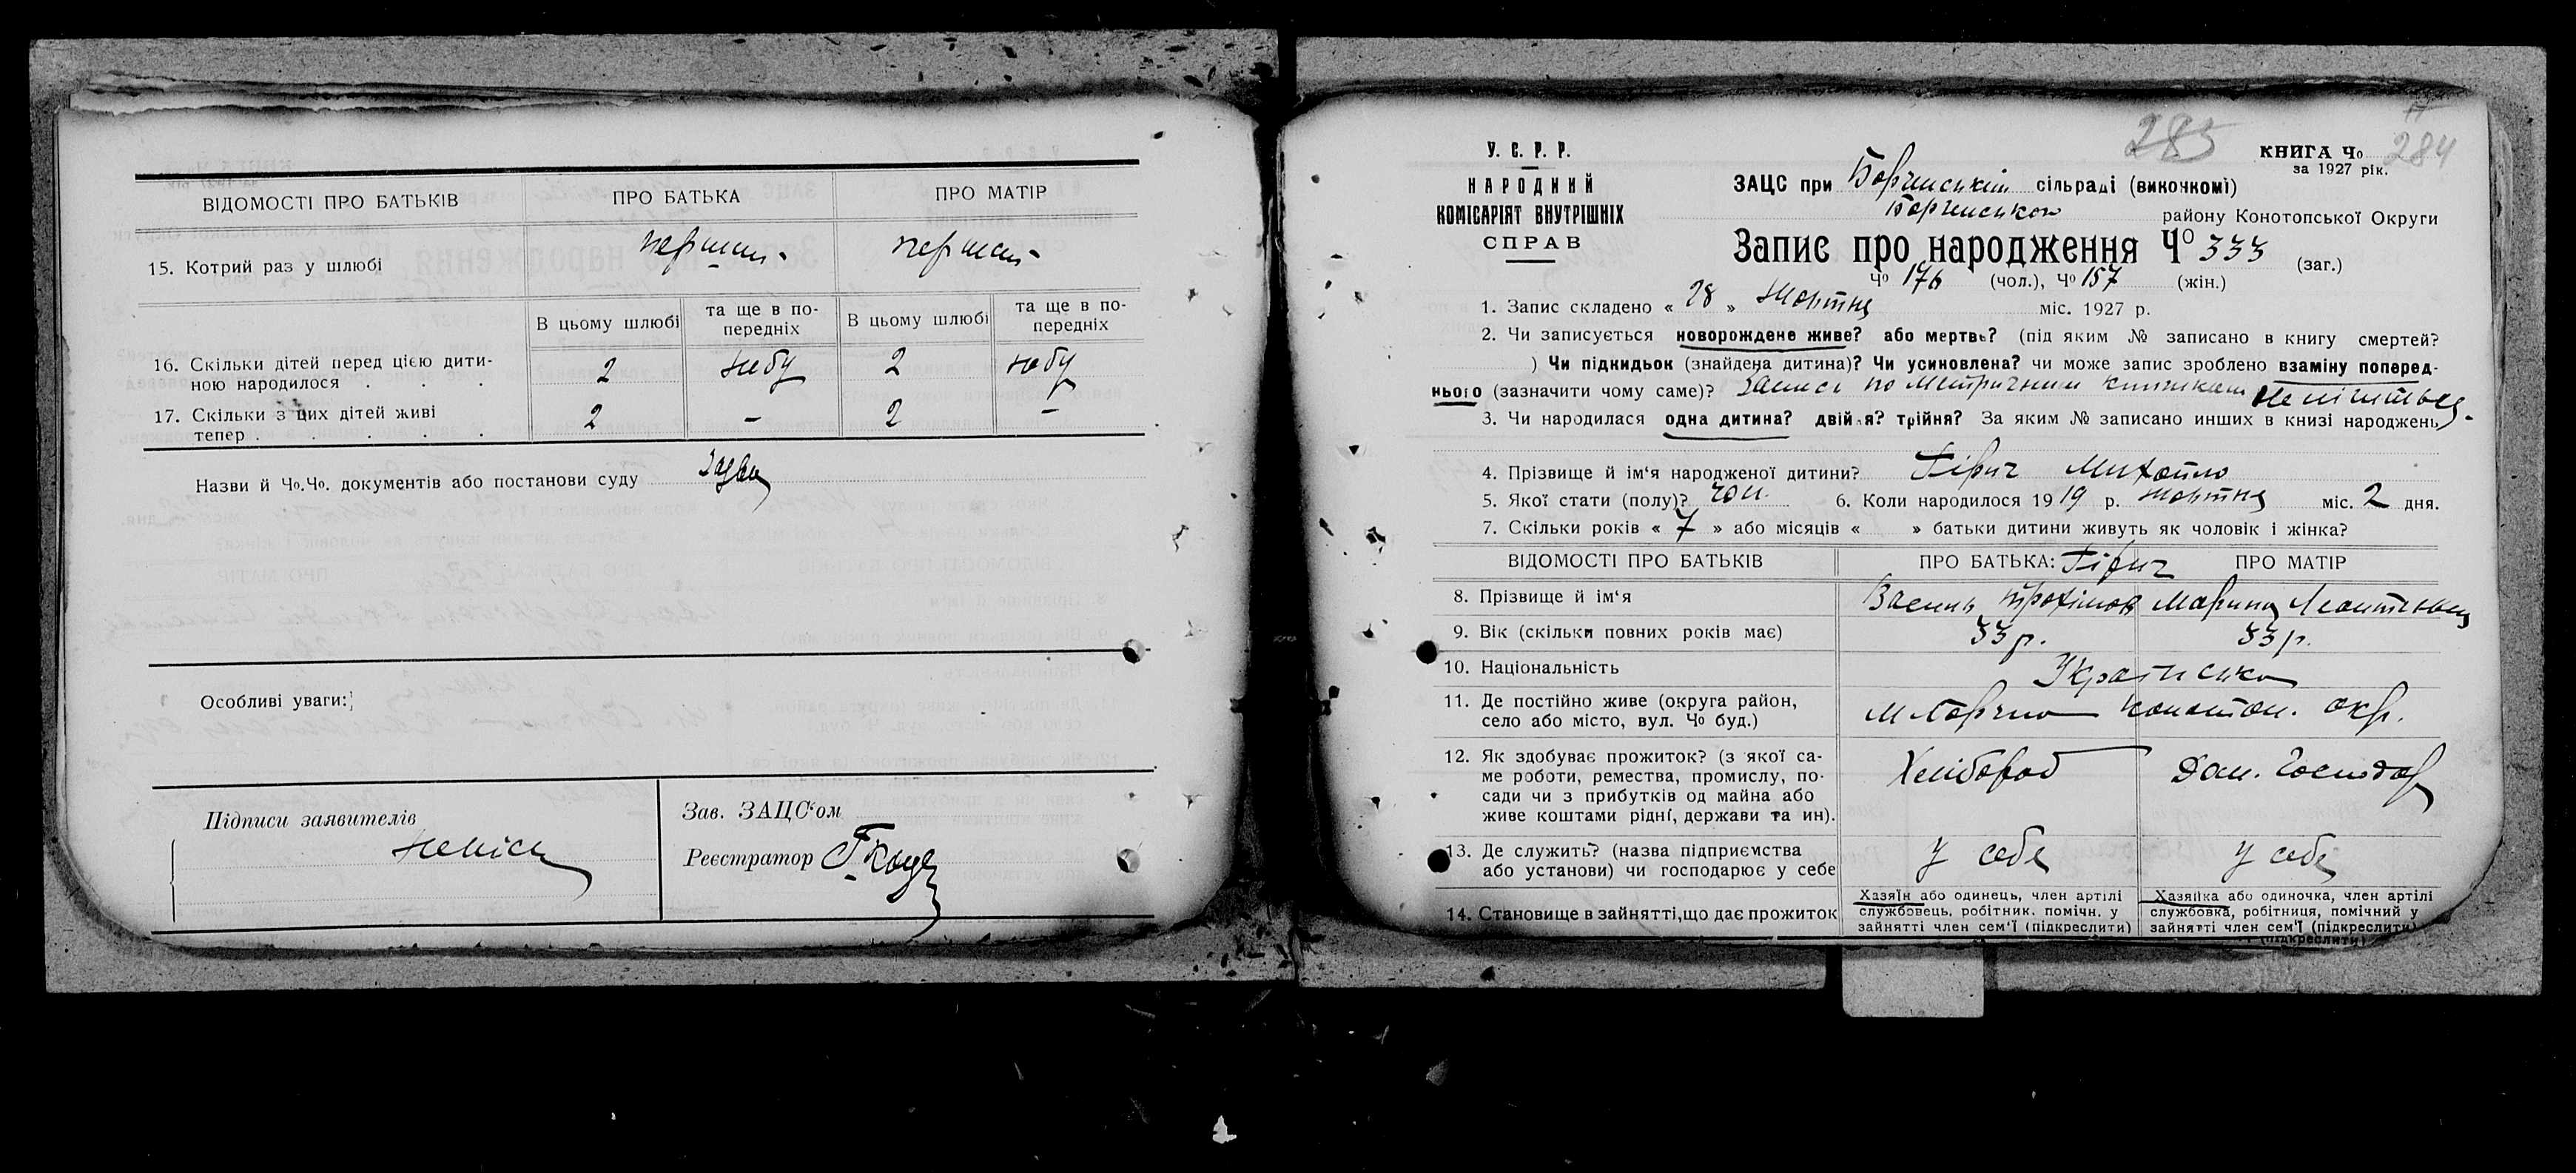 ВІДОМОСТІ ПРО БАТЬКІВ ПРО БАТЬКА ПРО МАТІР
15. Котрий раз у шлюбі перший перший
В цьому шлюбі та ще в по- В цьому шлюбі та ще в по-
передніх передніх
16. Скільки дітей перед цією дити- 2 небу 2 небу
ною народилося . . .
17. Скільки з цих дітей живі 2 – 2 –
тепер . . . . .
Назви й Чо.Чо. документів або постанови суду
Особливі уваги:
Підписи заявителів Зав. ЗАЦС‘ом
Реєстратор
285
284
У. С. Р. Р.
НАРОДНИЙ
КОМІСАРІЯТ ВНУТРІШНІХ
СПРАВ
КНИГА Чо
за 1927 рік.
ЗАЦС при Борзенській сільраді (викочкомі)
Борзенського району Конотопської Округи
Запис про народження Чо 333 (заг.)
Чо 176 (чол.), Чо 157 (жін.)
1. Запис складено « 28 » Жовтня міс. 1927 р.
2. Чи записується новорождене живе? або мертве? (під яким № записано в книгу смертей?
) Чи підкидьок (знайдена дитина)? Чи усиновлена? чи може запис зроблено взаміну поперед-
нього (зазначити чому саме)? Запись по Метричним книжкам
3. Чи народилася одна дитина? двійня? трійня? За яким № записано инших в книзі народжень
4. Прізвище й ім‘я народженої дитини? Гірич Михайло
5. Якої стати (полу)? чол. 6. Коли народилося 19 19 р. Жовтня міс. 2 дня.
7. Скільки років « 7 » або місяців « » батьки дитини живуть як чоловік і жінка?
ВІДОМОСТІ ПРО БАТЬКІВ ПРО БАТЬКА: Гірич ПРО МАТІР
8. Прізвище й ім‘я Василь Трохімов Марина Леонтьевна
9. Вік (скільки повних років має) 33 р. 33 р.
10. Національність Українська
11. Де постійно живе (округа район, м Борзна Конотоп. окр.
село або місто, вул. Чо буд.)
12. Як здобуває прожиток? (з якої са- Хлібороб Дом. Господар
ме роботи, ремества, промислу, по-
сади чи з прибутків од майна або
живе коштами рідні, держави та ин).
13. Де служить? (назва підприємства у себе у себе
або установи) чи господарює у себе
14. Становище в зайнятті,що дає прожиток
Хазяїн або одинець, член артілі
службовець, робітник, помічн. у
зайнятті член сем‘ї (підкреслити)
Хазяйка або одиночка, член артілі
службовка, робітниця, помічний у
зайнятті член сем‘ї (підкреслити)
(підкреслити)